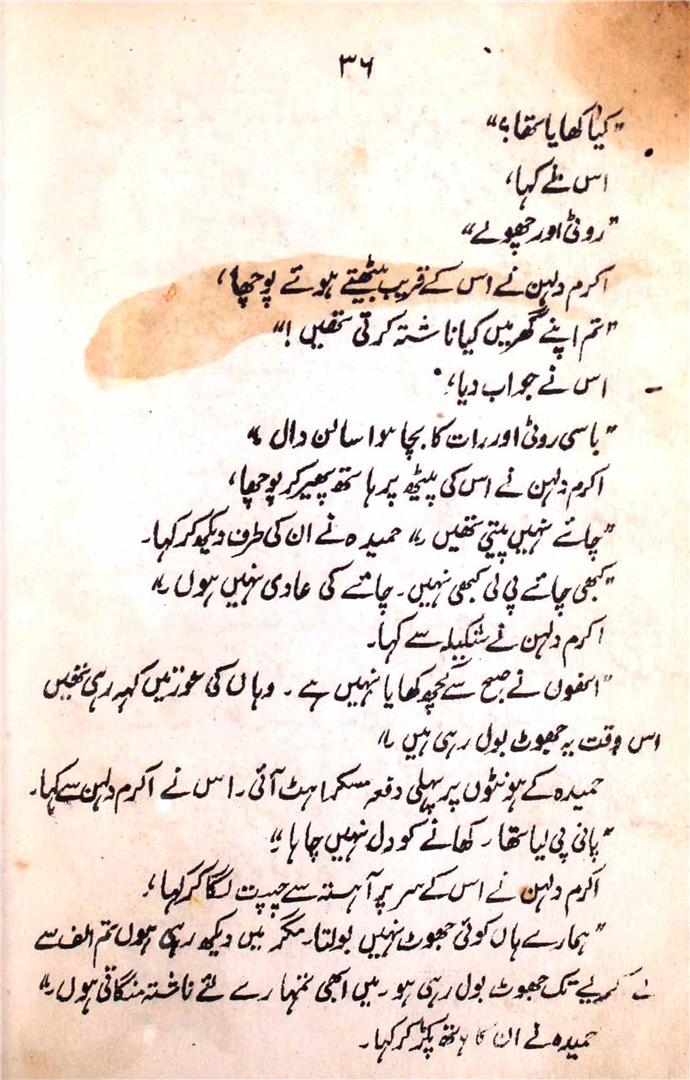 ۳۶
"کیا کھایا تھا؟"
اس نے کہا،
"روٹی اور چھولے"
اکرم دلہن نے اس کے قریب بیٹھتے ہوئے پوچھا،
"تم اپنے گھر میں کیا ناشتہ کرتی تھیں!"
اس نے جواب دیا،
"باسی روٹی اور رات کا بچا ہوا سالن دال"
اکرم دلہن نے اس کی پیٹھ پر ہاتھ پھیر کر پوچھا،
"چائے نہیں پیتی تھیں۔" حمیدہ نے ان کی طرف دیکھ کر کہا۔
"کبھی چائے پی لی کبھی نہیں۔ چائے کی عادی نہیں ہوں۔"
اکرم دلہن نے شکیلہ سے کہا۔
"انھوں نے صبح سے کچھ کھایا نہیں ہے۔ وہاں کی عورتیں کہہ رہی تھیں
اس وقت یہ جھوٹ بول رہی ہیں۔"
حمیدہ کے ہونٹوں پر پہلی دفعہ مسکراہٹ آئی۔ اس نے اکرم دلہن سے کہا۔
"پانی پی لیا تھا۔ کھانے کو دل نہیں چاہا۔"
اکرم دلہن نے اس کے سر پر آہستہ سے چپت لگا کر کہا،
"ہمارے ہاں کوئی جھوٹ نہیں بولتا۔ مگر میں دیکھ رہی ہوں تم الف سے
لے کر یے تک جھوٹ بول رہی ہو۔ میں ابھی تمہارے لئے ناشتہ منگاتی ہوں۔"
حمیدہ نے ان کا ہاتھ پکڑ کر کہا۔